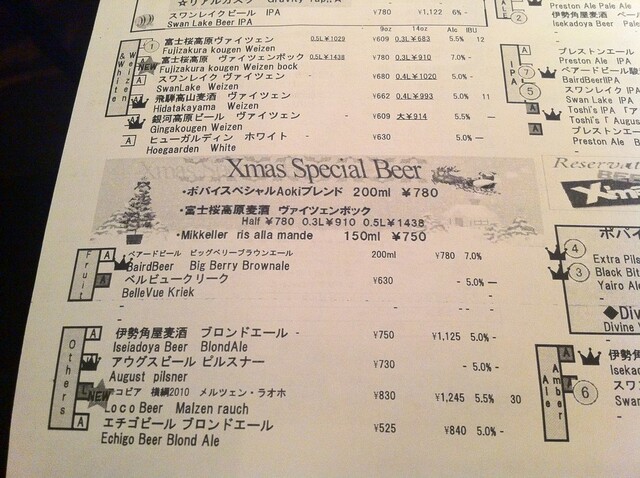 ☆リアルカスク
スワンレイクビール IPA ¥780 ¥1,122 6% -
Swan Lake Beer IPA
9oz 14oz Alc IBU
Weizen & White
① 富士桜高原 ヴァイツェン 0.5L ¥1029 ¥609 0.3L ¥683 5.5% 12
Fujizakura kougen Weizen
NEW 富士桜高原 ヴァイツェンボック 0.5L ¥1438 ¥780 0.3L ¥910 7.0% -
Fujizakura kougen Weizen bock
A スワンレイク ヴァイツェン ¥680 0.4L ¥1020 5.0% -
SwanLake Weizen
飛騨高山麦酒 ヴァイツェン ¥662 0.4L ¥993 5.0% 11
Hidatakayama Weizen
銀河高原ビール ヴァイツェン ¥609 大¥914 5.5% —
Gingakougen Weizen
A ヒューガルディン ホワイト ¥630 5.0% —
Hoegaarden White
Xmas Special Beer
・ボバイスペシャルAokiブレンド 200ml ¥780
・富士桜高原麦酒 ヴァイツェンボック
Half ¥780 0.3L¥910 0.5L¥1438
・Mikkeller ris alla mande 150ml ¥750
Fruit
A ベアードビール ビッグベリーブラウンエール 200ml ¥780 7.0%
BairdBeer Big Berry Brownale
A ベルビュークリーク ¥630 - 5.0% —
BelleVue Kriek
Others
A 伊勢角屋麦酒 ブロンドエール - ¥750 ¥1,125 5.0% -
Iseiadoya Beer BlondAle
アウグスビール ピルスナー ¥730 - 5.0% -
August pilsner
NEW コビア 横綱2010 メルツェン・ラオホ ¥830 ¥1,245 5.5% 30
Loco Beer Malzen rauch
A エチゴビール ブロンドエール ¥525 ¥840 5.0% -
Echigo Beer Blond Ale
Preston Ale Pale Ale
② 伊勢角屋ビール
Isekadoya Beer Pale
IPA
A プレストンエール
Preston Ale IPA
⑦ ベアードビール
BairdBeerIPA
⑤ スワンレイク IPA
Swan Lake IPA
A Toshi's IPA
Toshi's「Augus
A プレストンエール
Preston Ale IPA
Reserva
BEE
④
Extra Pils
③ Black Bi
Yairo Ale
◆Div
Divine
Amber Ale
A 伊勢角
Isekad
A ⑥ スワ
Swan
A